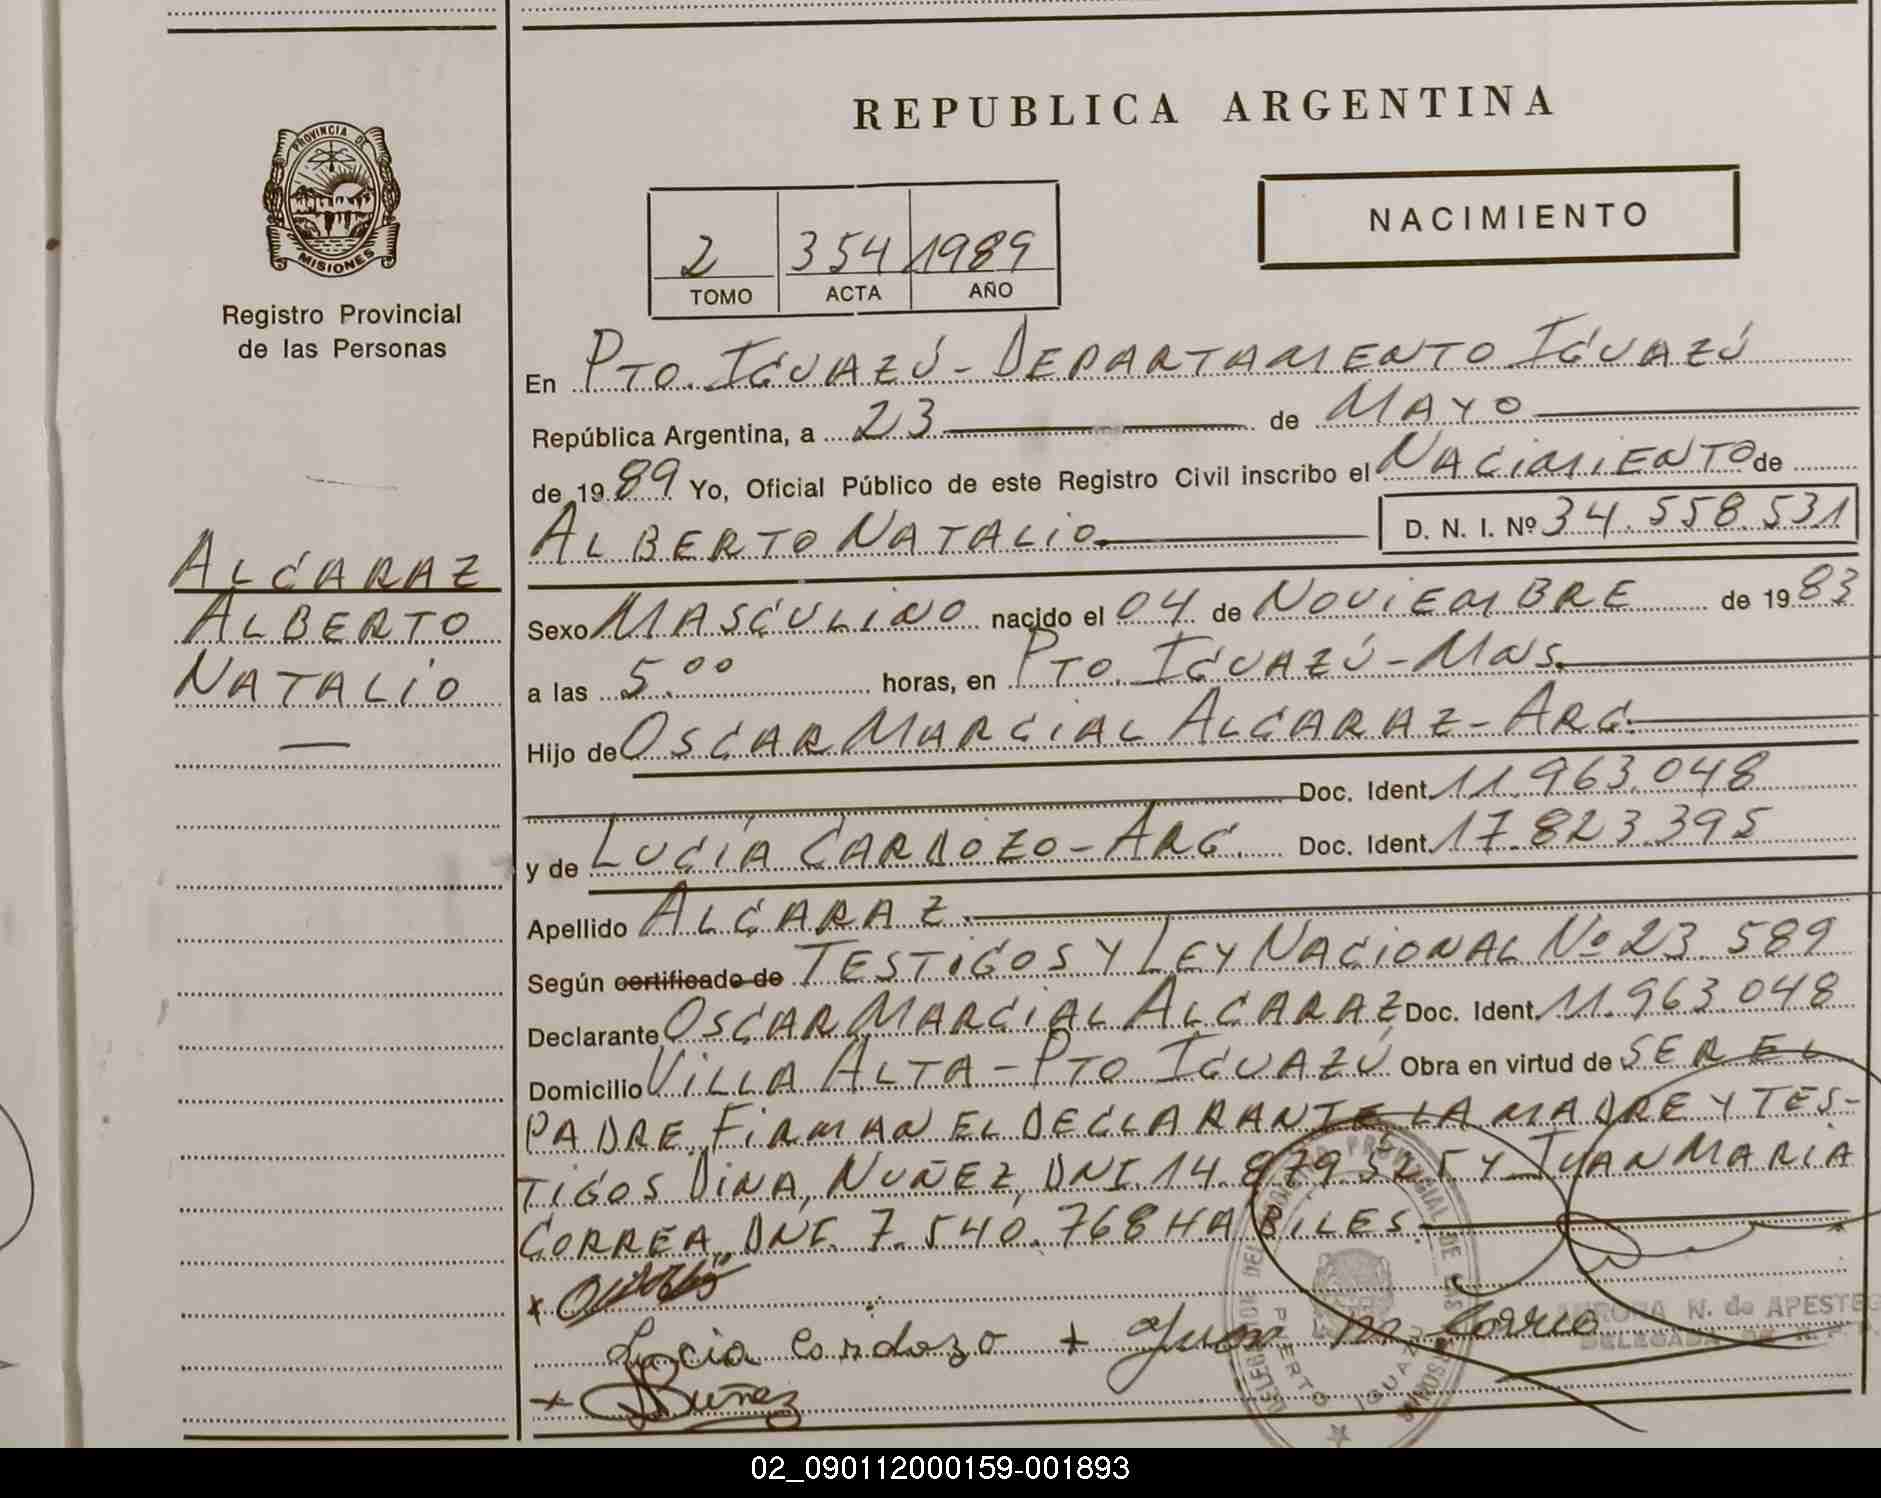 PROVINCIA DE
MISIONES
Registro Provincial
de las Personas
ALCARAZ
ALBERTO
NATALIO
REPUBLICA ARGENTINA
NACIMIENTO
2 354 1989
TOMO ACTA AÑO
En PTO. IGUAZÚ - DEPARTAMENTO IGUAZÚ
República Argentina, a 23 de MAYO
de 1989 Yo, Oficial Público de este Registro Civil inscribo el NACIMIENTO de
ALBERTO NATALIO. D. N. I. Nº 34.558.531
Sexo MASCULINO nacido el 04 de NOVIEMBRE de 1983
a las 5.00 horas, en PTO. IGUAZÚ - MNS.
Hijo de OSCAR MARCIAL ALCARAZ - ARG.
Doc. Ident. 11.963.048
y de LUCÍA CARDOZO - ARG. Doc. Ident. 17.823.395
Apellido ALCARAZ.
Según certificado de TESTIGOS Y LEY NACIONAL Nº 23.589
Declarante OSCAR MARCIAL ALCARAZ Doc. Ident. 11.963.048
Domicilio VILLA ALTA - PTO IGUAZÚ Obra en virtud de SER EL
PADRE. FIRMAN EL DECLARANTE LA MADRE Y TES-
TIGOS DINA, NUÑEZ, DNI. 14.879.525 Y JUAN MARIA
CORREA, DNI. 7.540.768 HABILES.
Lucia Cardozo + Juan M. Correa
+ DNuñez
N. de APESTEG
DELEGADA
PROVINCIAL DE LAS PERSONAS
PUERTO IGUAZU
02_090112000159-001893